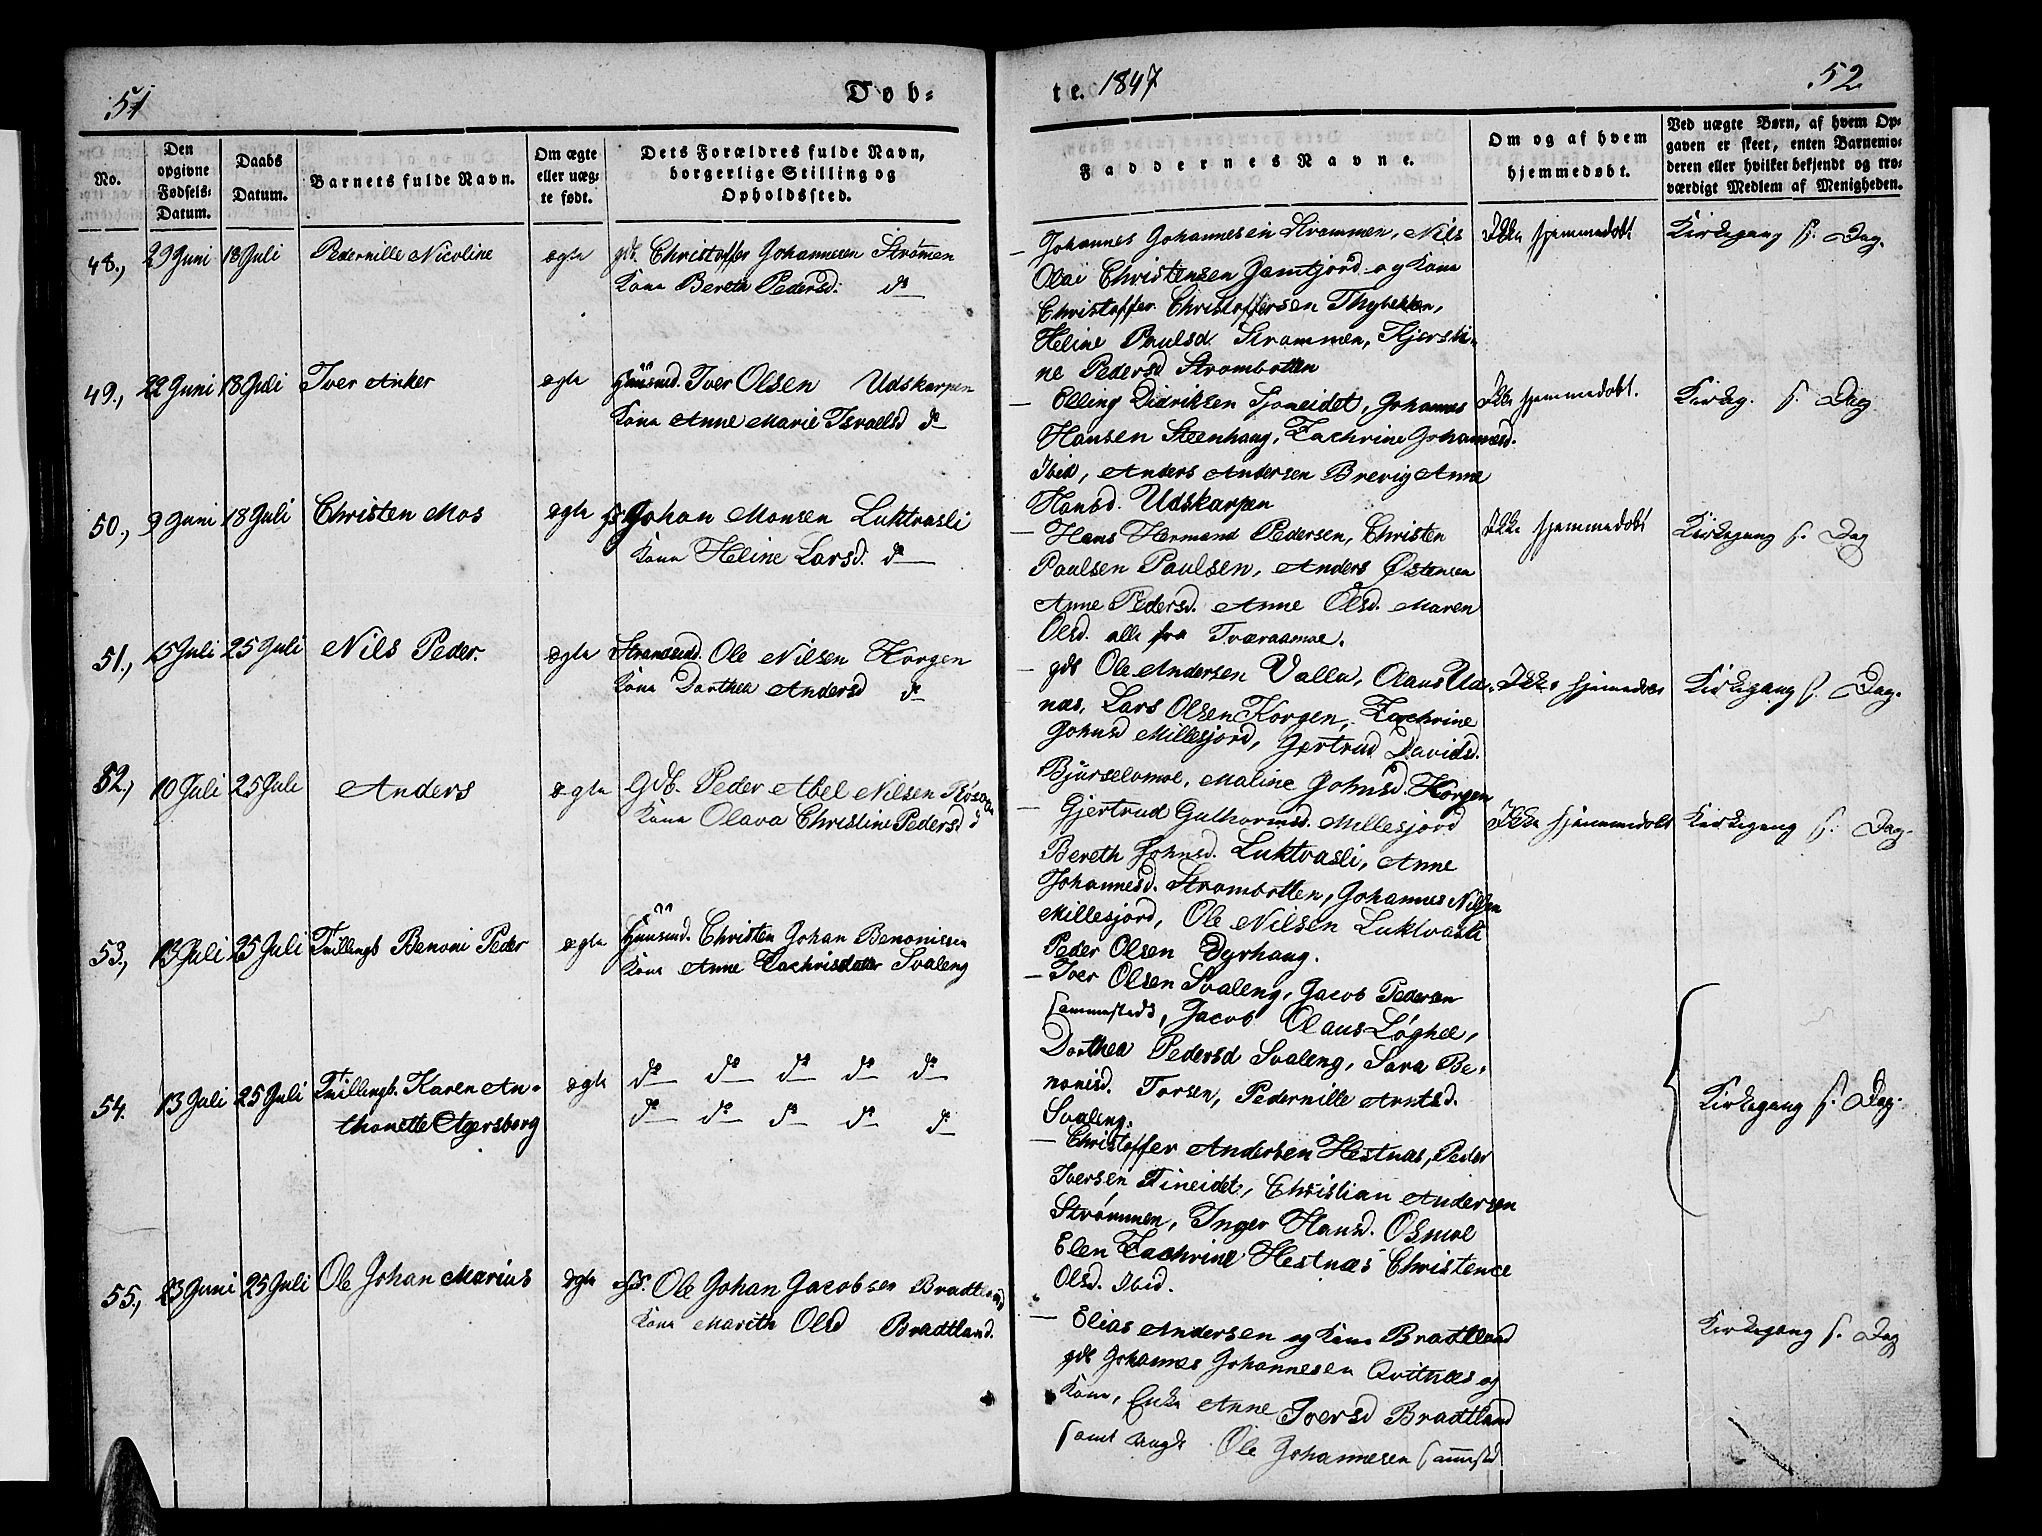 51
Døb-
No.
Den
opgivne
Fødsels-
Datum.
Daabs
Datum.
Barnets fulde Navn.
Om ægte
eller uæg-
te født.
Dets Forældres fulde Navn,
borgerlige Stilling og
Opholdssted.
48., 29 Juni 18 Juli Pedernille Nicoline ægte gdb. Christoffer Johannesen Strømen
Kone Bereth Pedersd: do
49., 22 Juni 18 Juli Iver Anker ægte Huusmd. Iver Olsen Udskarpen
Kone Anne Marie Israelsd do
50., 9 Juni 18 Juli Christen Mos ægte Johan Monsen Luktvasli
Kone Heline Larsd. do
51., 15 Juli 25 Juli Nils Peder. ægte Strandsid. Ole Nilsen Korgen
Kone Dorthea Andersd do
52., 10 Juli 25 Juli Anders ægte Gdb. Peder Abel Nilsen Røsaa
Kone Olava Christine Pedersd d
53., 13 Juli 25 Juli Tvillingb Benoni Peder ægte Huusmd. Christen Johan Benonisen
Kone Anne Zachrisdatter Svaleng
54. 13 Juli 25 Juli Tvillingb. Karen An- ægte do do do do do
thonette Agersborg do do do do do
55., 23 Juni 25 Juli Ole Johan Marius ægte Ole Johan Jacobsen Bradtland
Kone Marith Olsd Bradtland.
te. 1847
52
Faddernes Navne.
Om og af hvem
hjemmedøbt.
Ved uægte Børn, af hvem Op-
gaven er skeet, enten Barnemo-
deren eller hvilket bekjendt og tro-
værdigt Medlem af Menigheden.
— Johannes Johannesen Strammen, Nils Ikke hjemmedøbt Kirkegang s. Dag.
Olai Christensen Jamtjord og Kone
Christoffer Christoffersen Thybekken,
Heline Paulsd Strammen, Kjersti-
ne Pedersd Strombotten
— Elling Didriksen Sjoneidet, Johannes Ikke hjemmedøbt. Kirkeg. s. Dag
Hansen Steenhaug, Zachrine Johannesd.
Ibid, Anders Andersen Brevig Anne
Hansd. Udskarpen
— Hans Hermand Pedersen, Christen Ikke hjemmedøbt Kirkegang s. Dag
Paulsen Paulsen, Anders Østensen
Anne Pedersd. Anne Olsd. Maren
Olsd. alle fra Tværaamoe.
— gdb Ole Andersen Valla, Olaus Ikke hjemmedøbt Kirkegang s. Dag.
næs, Lars Olsen Korgen, Zachrine
Johnsd Millesjord, Gjertrud Davidsd.
Bjurselvmoe, Maline Johnsd. Korgen
— Gjertrud Gulhormsd. Millesjord Ikke hjemmedøbt Kirkegang s. Dag.
Bereth Johnsd. Luktvasli, Anne
Johannesd. Strombotten, Johannes Nilsen
Millesjord, Ole Nilsen Luktvasli
Peder Olsen Dyrhaug.
— Iver Olsen Svaleng, Jacob Pedersen
sammesteds, Jacob Olaus Løghei,
Dorthea Pedersd Svaleng, Sara Be-
nonisd. Forsen, Pedernille Arntsd.
Svaleng.
Kirkegang s. Dag.
— Christoffer Andersen Hestnæs, Peder
Iversen Fineidet, Christian Andersen
Strømmen, Inger Hansd. Osmoe
Elen Zachrine Hestnæs Christence
Olsd. Ibid.
— Elias Andersen og Kone Bradtland Kirkegang s. Dag
gdb Johannes Johannesen Qvitnæs og
Kone, Enke Anne Iversd Bradtland
samt ungk Ole Johannesen sammested